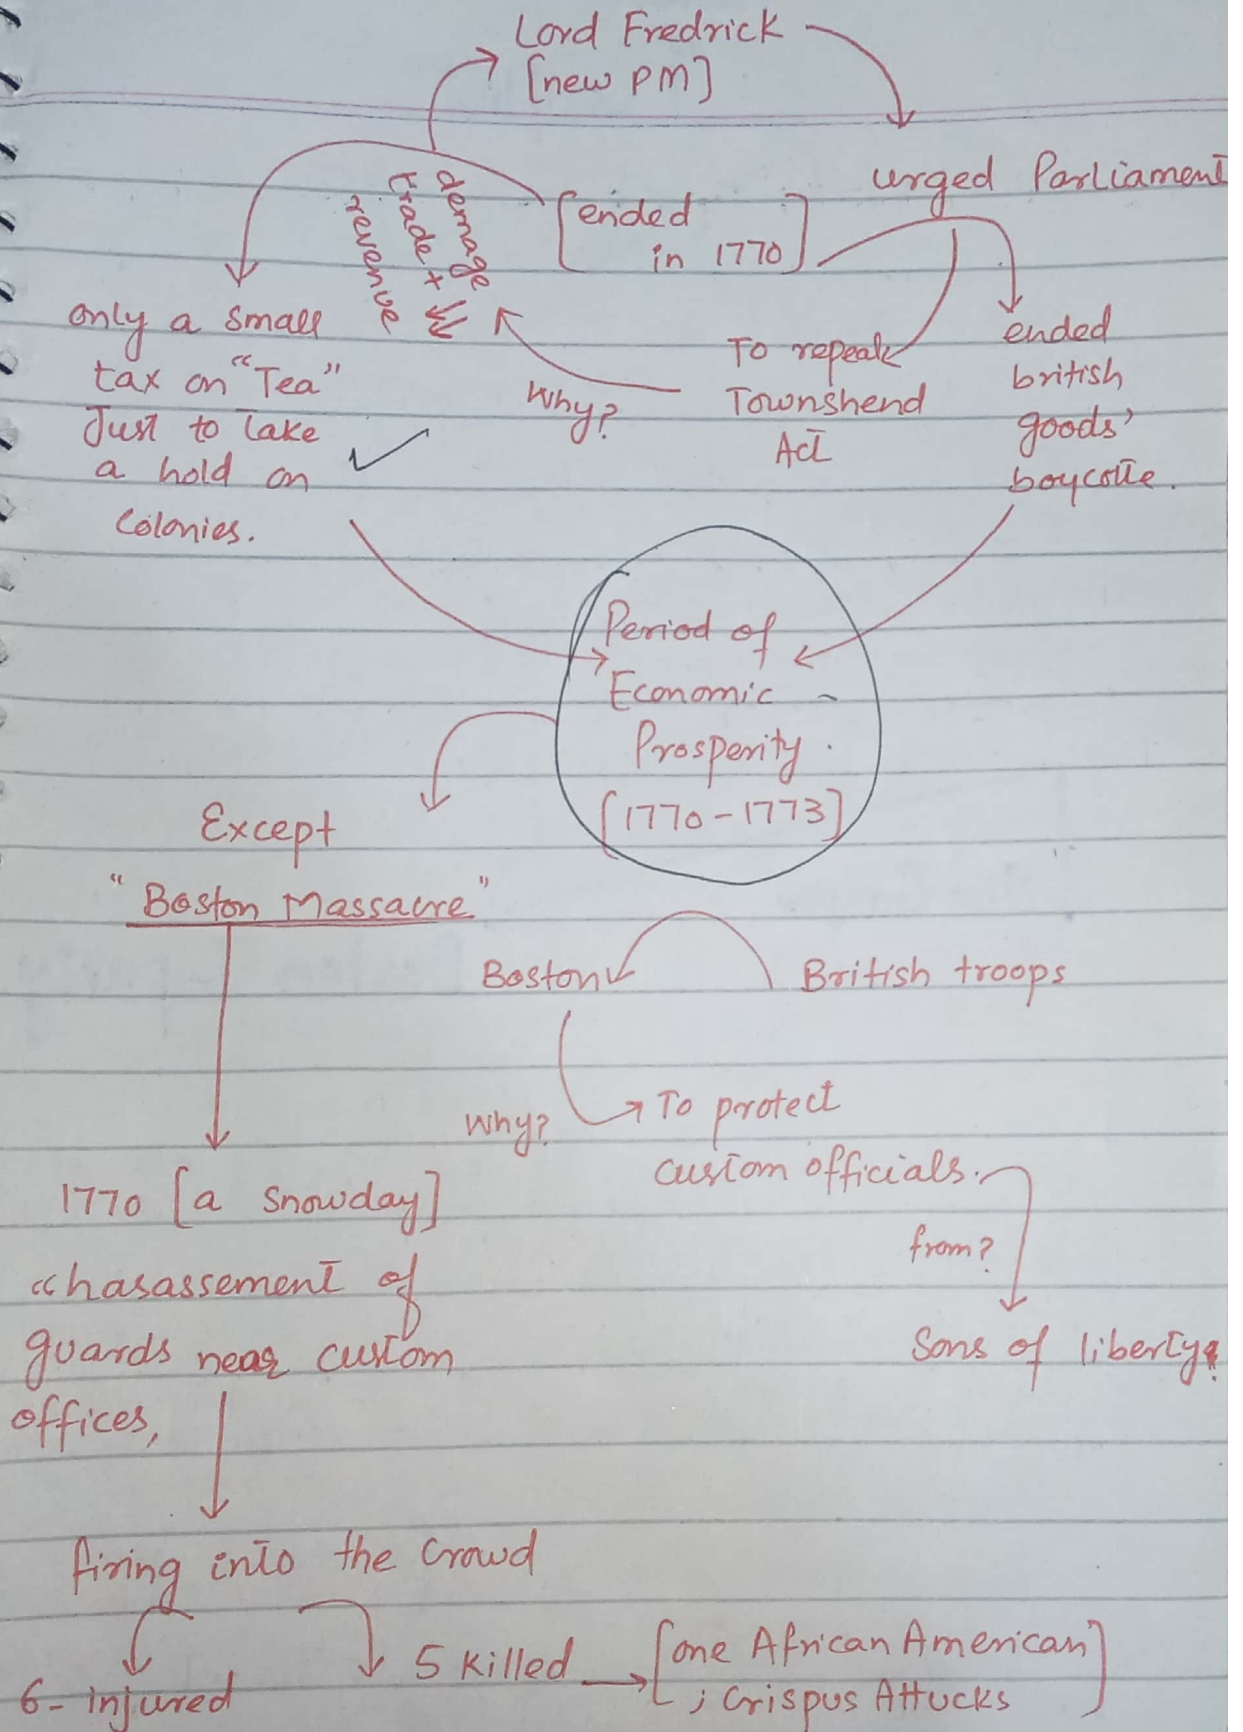 Lord Fredrick
[new PM]
urged Parliament
demage
trade +
revenue
[ended
in 1770]
only a small
tax on "Tea"
Just to take
a hold on
Colonies.
Why?
To repeal
Townshend
Act
ended
british
goods'
boycotte.
Period of
Economic
Prosperity.
[1770-1773]
Except
"Boston Massacre"
Boston
British troops
Why?
To protect
custom officials.
from?
Sons of liberty.
1770 [a snowday]
"hasassement of
guards near custom
offices,
firing into the Crowd
6- injured
5 killed
[one African American
; Crispus Attucks]